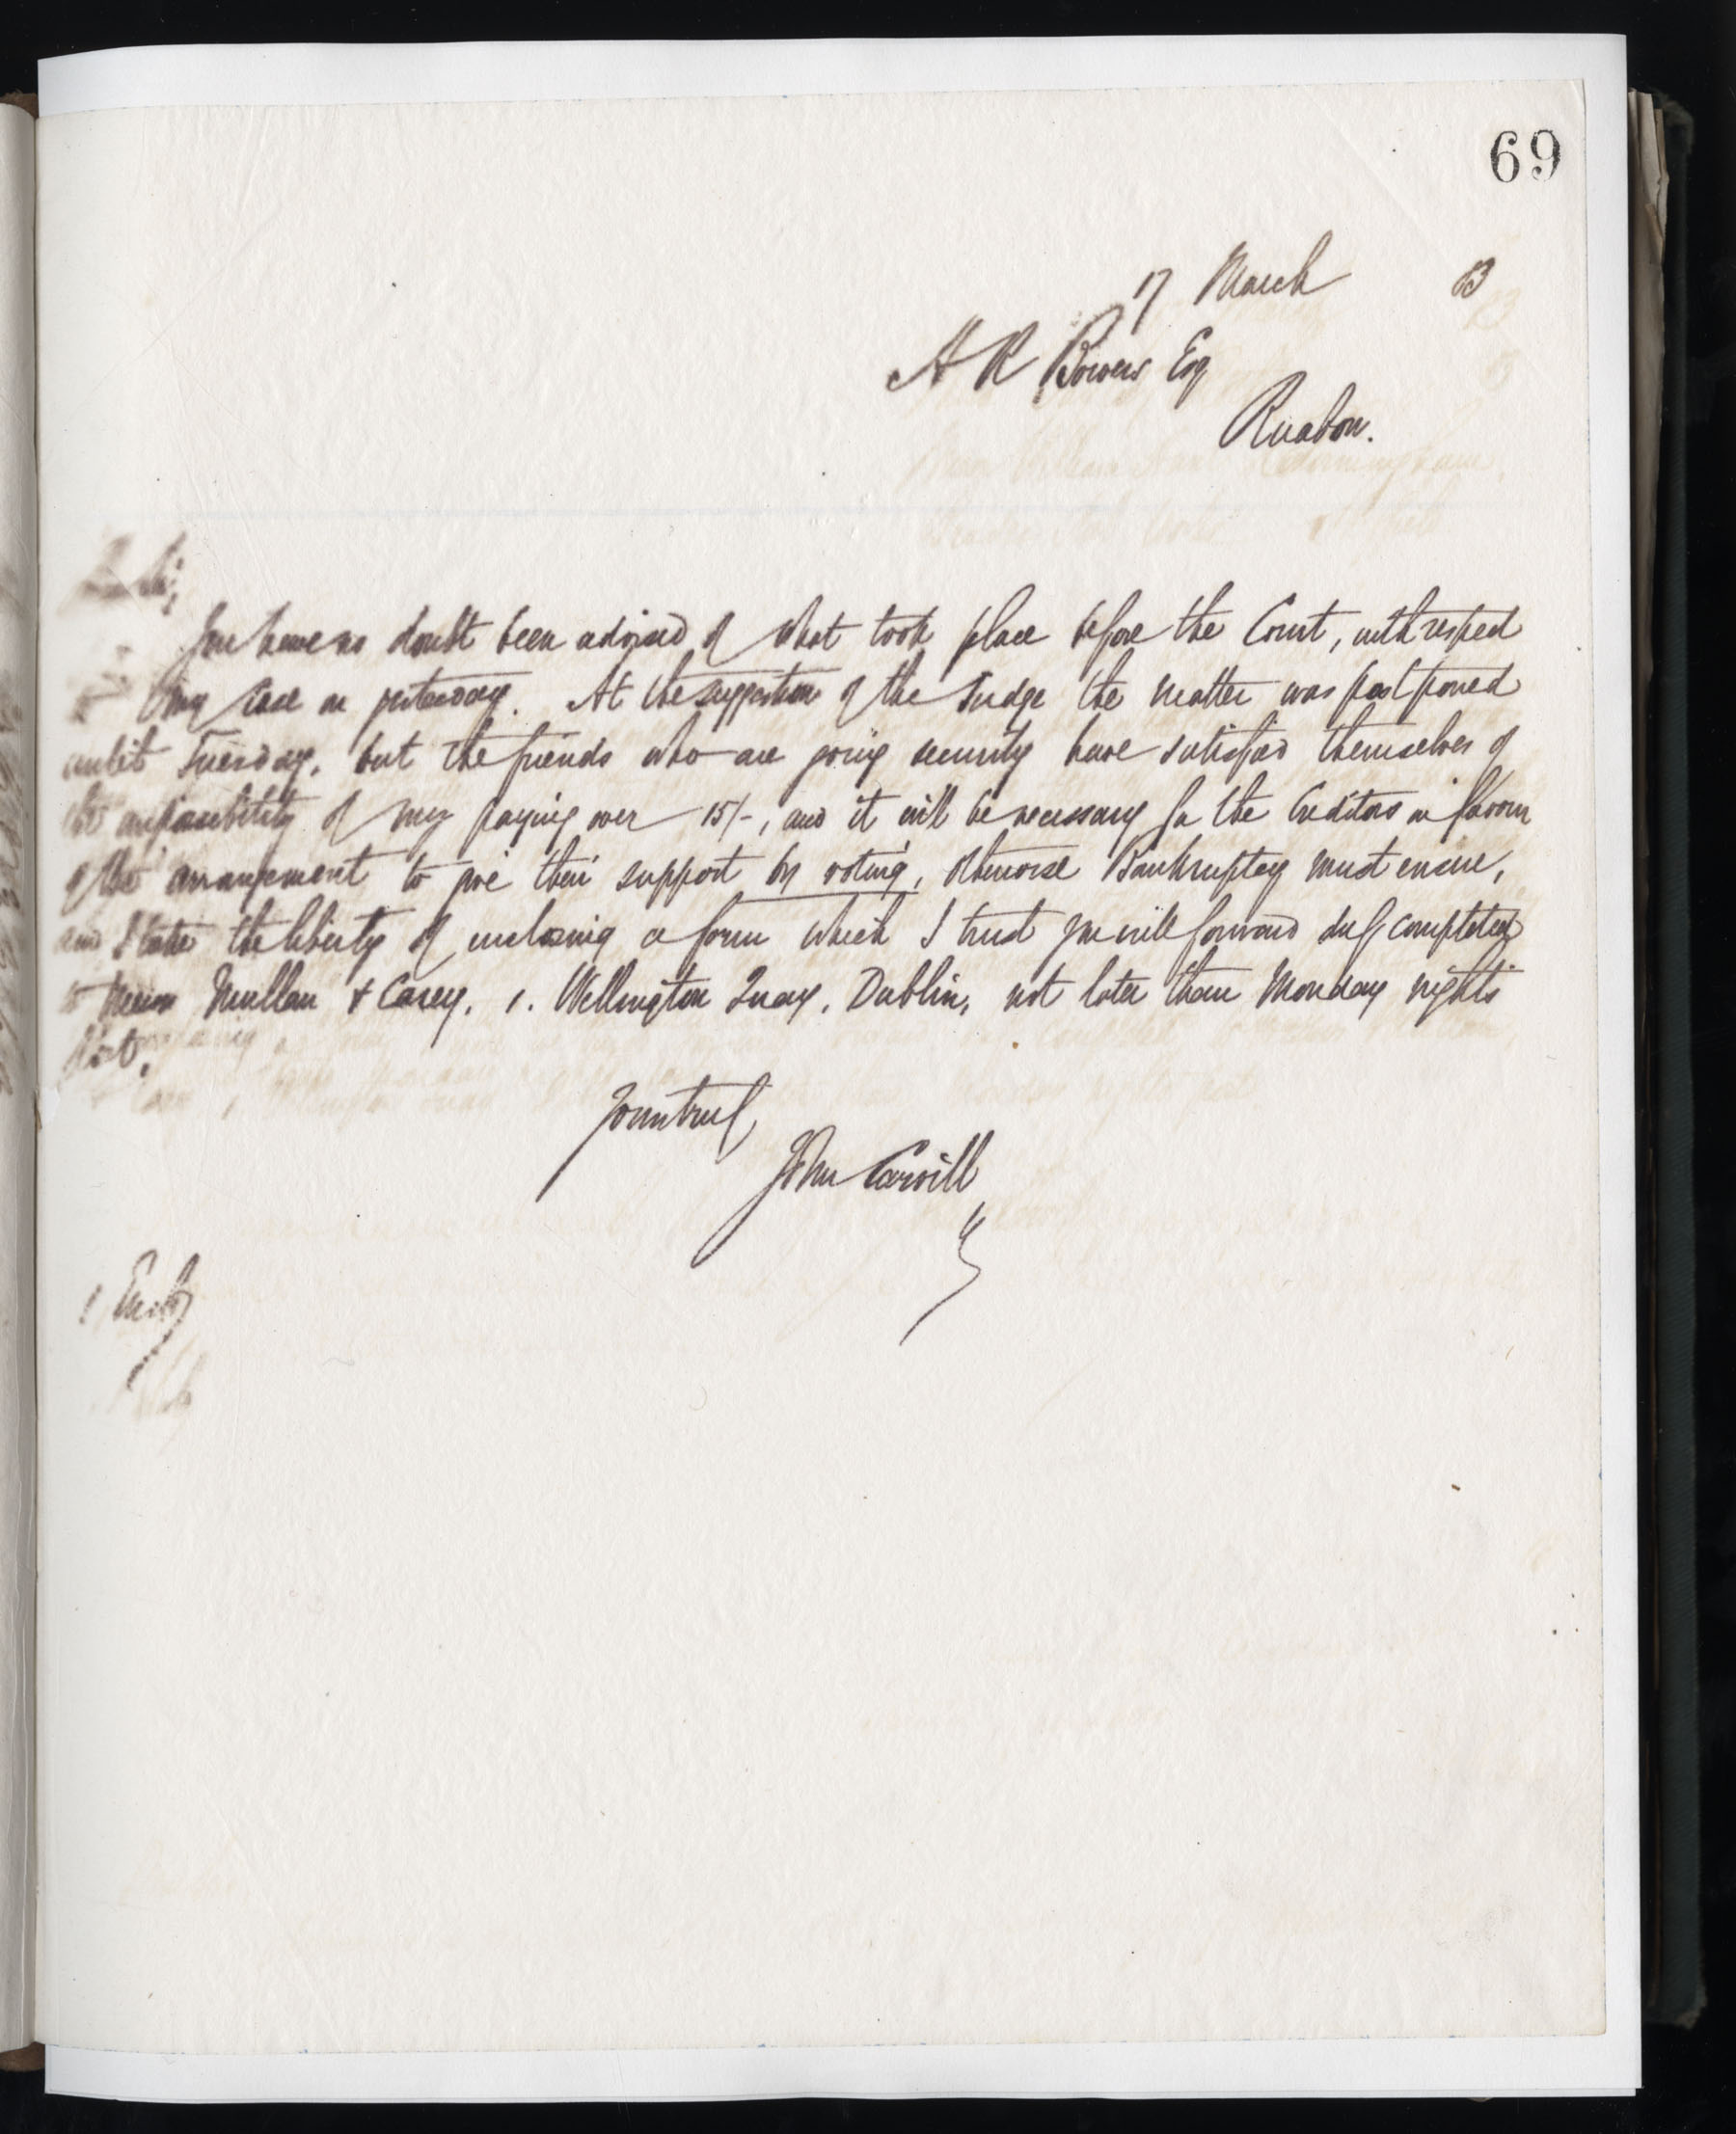 69
17 March 83
A R Bowers Esq
Ruabon.
Dear Sir,
You have no doubt been advised of what took place before the Court, with respect
to my case on yesterday. At the suggestion of the Judge the matter was postponed
until Tuesday, but the friends who are going security have satisfied themselves of
the impossibility of my paying over 15/-, and it will be necessary for the Creditors in favour
of the arrangement to give their support by voting, otherwise Bankruptcy must ensue,
and I take the liberty of enclosing a form which I trust you will forward duly completed
to Messrs Mullan & Casey, 1. Wellington Quay, Dublin, not later than Monday nights
Post.
Yours truly
John Carvill
1 Encl